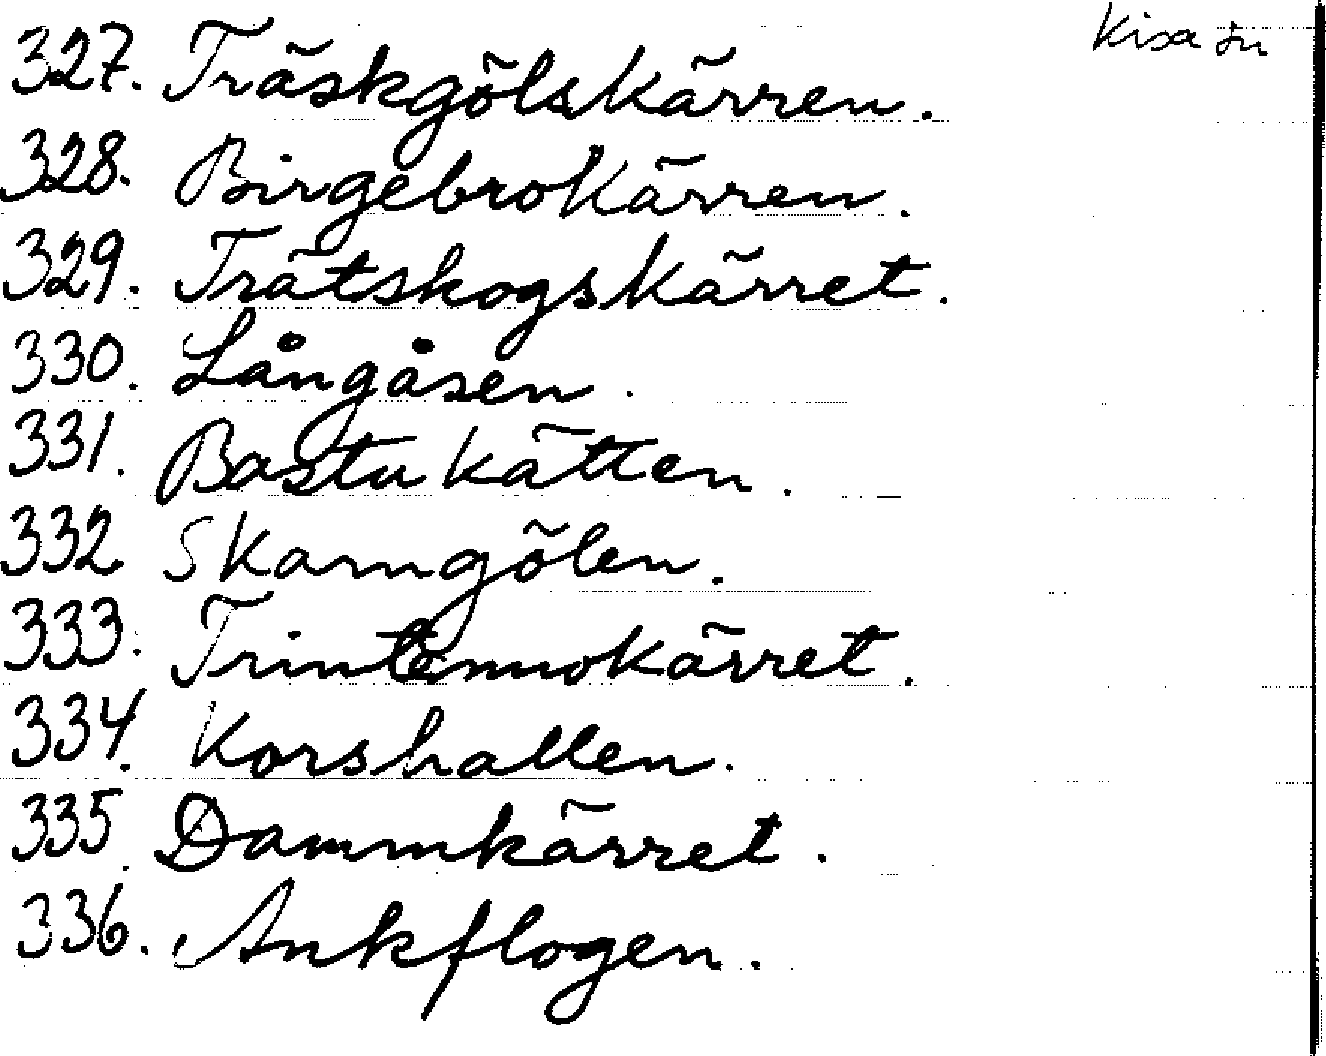 Kisa sn
327. Träskgölskärren.
328. Birgebrokärren.
329. Trätskogskärret.
330. Långåsen.
331. Bastukätten.
332 Skarngölen.
333. kärret.
334. Korshallen.
335. Dammkärret.
336. Ankflogen.